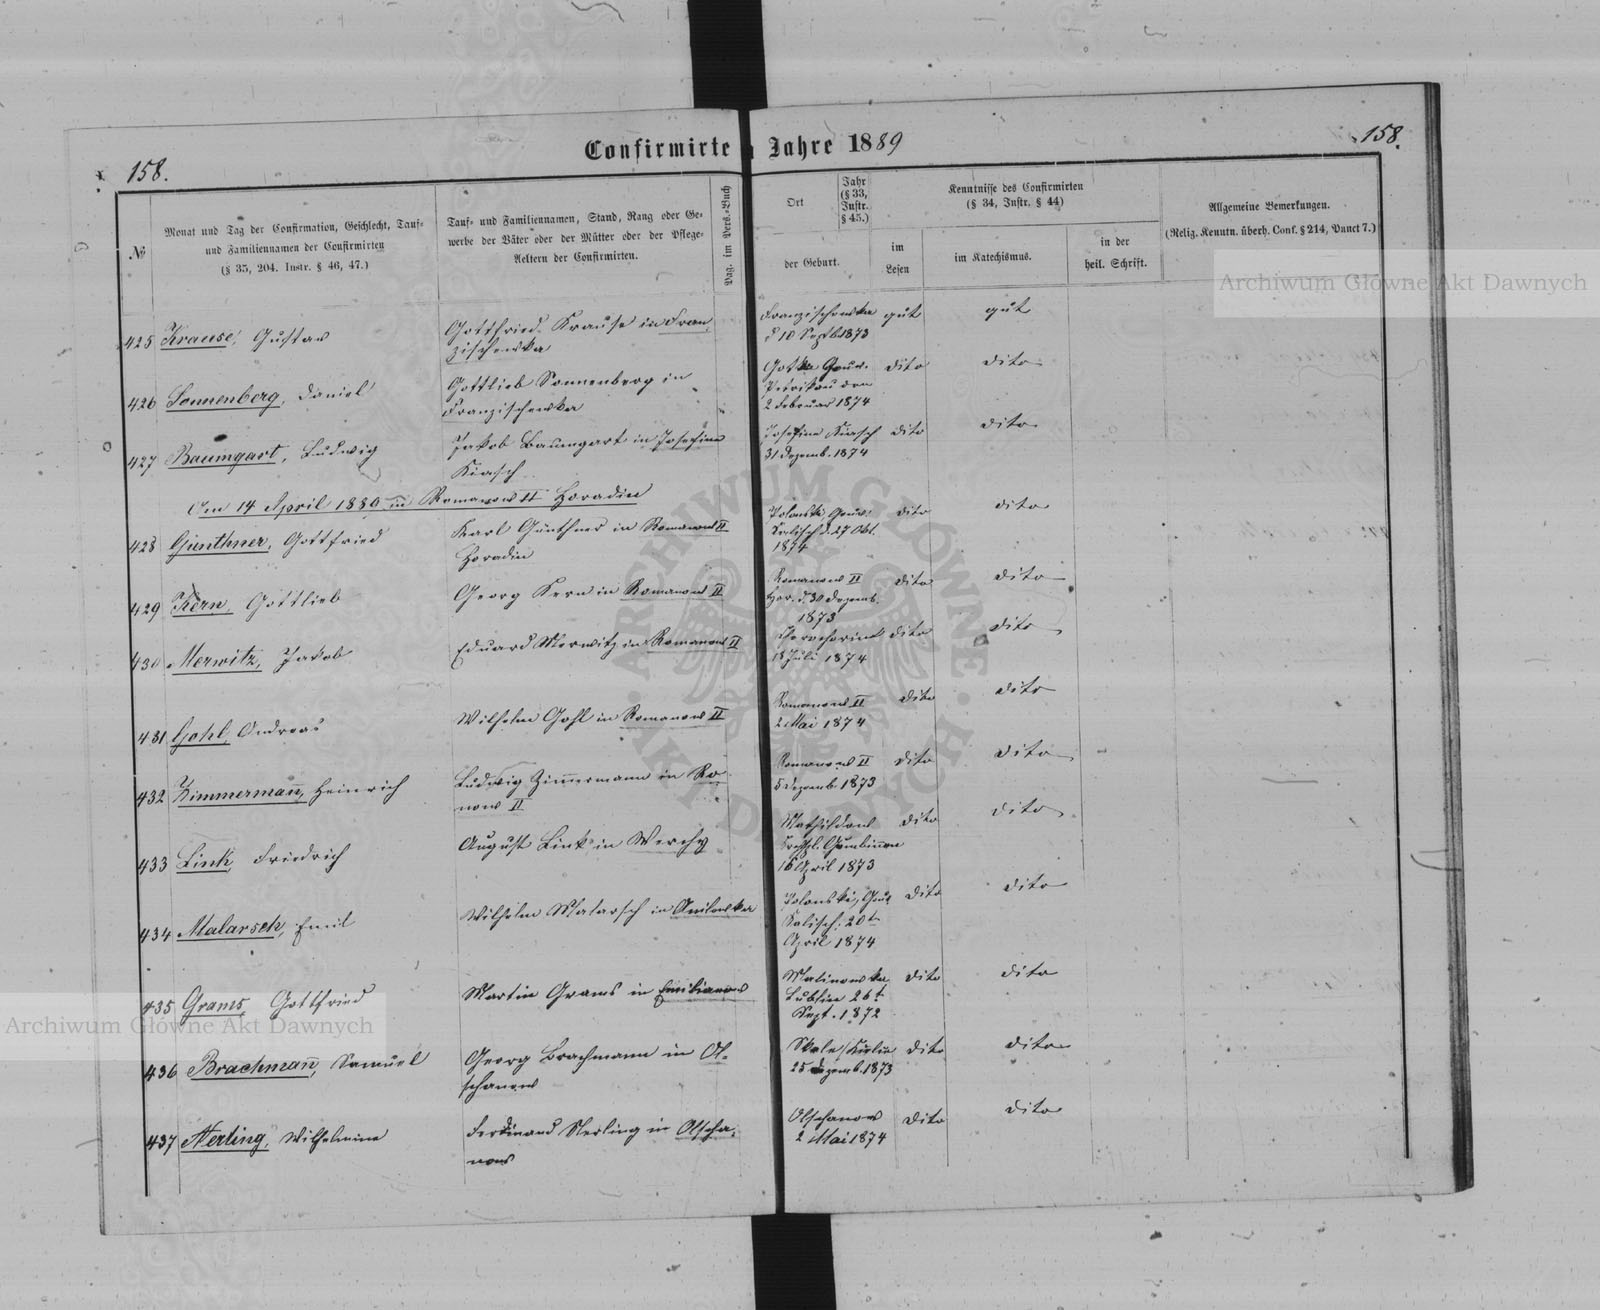 Confirmirte n Jahre 1889
158.
158.
№
Monat und Tag der Confirmation, Geschlecht, Tauf-
und Familiennamen der Confirmirten
(§ 35, 204. Instr. § 46, 47.)
Tauf- und Familiennamen, Stand, Rang oder Ge-
werbe der Väter oder der Mütter oder der Pflege-
Aeltern der Confirmirten.
Pag. im Pers.-Buch
Ort
der Geburt.
Jahr
(§ 33,
Instr.
§ 45.)
Kenntnisse des Confirmirten
(§ 34, Instr. § 44)
im
Lesen
im Katechismus.
in der
heil. Schrift.
Allgemeine Bemerkungen.
(Relig. Kenntn. überh. Conf. § 214, Punct 7.)
425 Krause, Gustav
Gottfried Krause in Fran
zischewka
Franzischewka
d 10 Septbr 1873
gut
gut
426 Sonnenberg, Daniel
Gottlieb Sonnenberg in
Franzischewka
Gouv.
Petrikau den
2 Februar 1874
dito
dito
427 Baumgart, Ludwig
Jakob Baumgart in Josefine
Kiasch
Josefine Kiasch
31 Dezemb. 1874
dito
dito
Am 14 April 1889 in Romanow II Horadin
428 Günthner, Gottfried
Karl Günthner in Romanow II
Horadin
Polanski Gouv.
Kalisch d. 27 Okt.
1874
dito
dito
429 Kern, Gottlieb
Georg Kern in Romanow II
Romanow II
Hor. d. 30 Dezemb.
1873
dito
dito
430 Merwitz, Jakob
Eduard Merwitz in Romanow II
18 Juli 1874
dito
dito
431 Gohl, Andreas
Wilhelm Gohl in Romanow II
Romanow II
2 Mai 1874
dito
dito
432 Zimmermann, Heinrich
Ludwig Zimmermann in Ro
now II
Romanow II
5 Dezemb 1873
dito
dito
433 Link, Friedrich
August Link in Werchy
Mathildow
16 April 1873
dito
dito
434 Malarsch, Emil
Wilhelm Malarsch in Anilowka
Polanski, Gouv
Kalisch. 20t
April 1874
dito
dito
435 Grams, Gottfried
Martin Grams in Emilianow
Malinowka
Lublin 26t
Sept. 1872
dito
dito
436 Brachmann, Samuel
Georg Brachmann in Ol-
schanow
25 Dezemb. 1873
dito
dito
437 Nerling, Wilhelmine
Ferdinand Nerling in Olscha-
now
Olschanow
2 Mai 1874
dito
dito
Archiwum Główne Akt Dawnych
Archiwum Główne Akt Dawnych
ARCHIWUM GŁÓWNE · AKT DAWNYCH ·